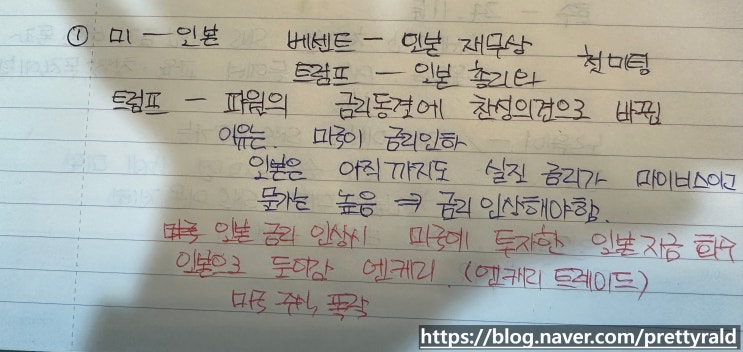 ① 미 — 일본 베센트 — 일본 재무상 첫 미팅
트럼프 — 일본 총리와
트럼프 — 파월의 금리동결에 찬성의견으로 바뀜
이유는. 미국이 금리인하
일본은 아직까지도 실질 금리가 마이너스이고
물가는 높음 ⇒ 금리 인상해야함.
일본 금리 인상시 미국에 투자한 일본자금 회수
일본으로 돌아감 엔케리. (엔케리 트레이드)
미국 주식 폭락
https://blog.naver.com/prettyrald